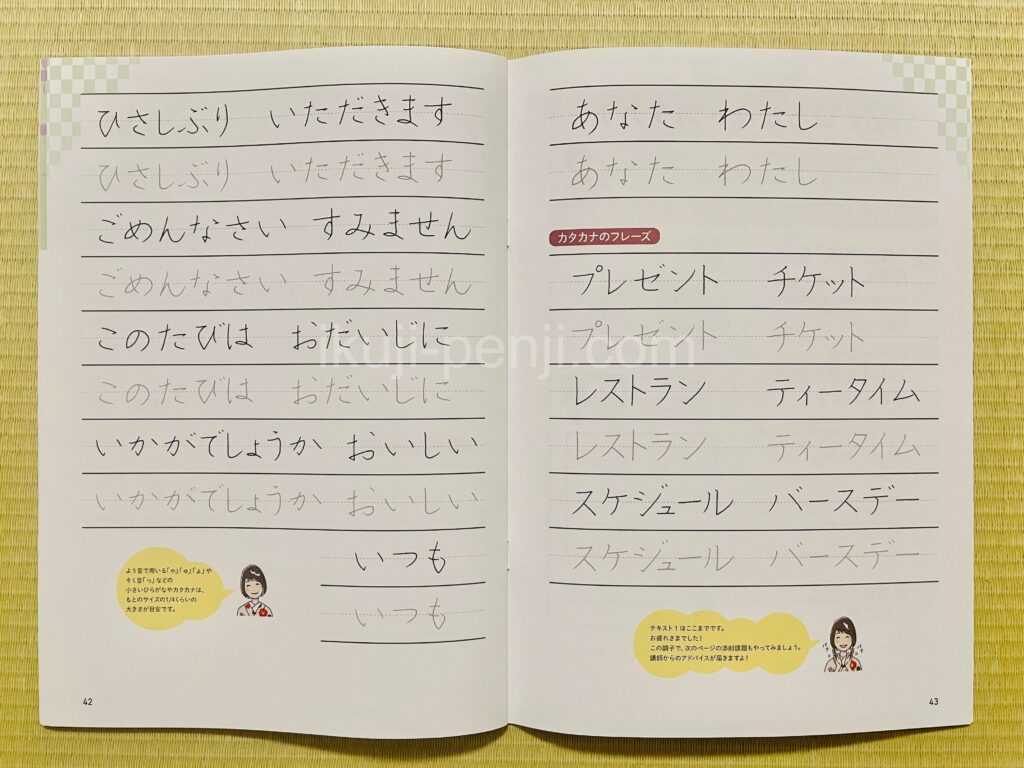 ひさしぶり いただきます
ひさしぶり いただきます
ごめんなさい すみません
ごめんなさい すみません
このたびは おだいじに
このたびは おだいじに
いかがでしょうか おいしい
いかがでしょうか おいしい
いつも
いつも
よう音で用いる「ゃ」「ゅ」「ょ」や
そく音「っ」などの
小さいひらがなやカタカナは、
もとのサイズの1/4くらいの
大きさが目安です。
42
あなた わたし
あなた わたし
カタカナのフレーズ
プレゼント チケット
プレゼント チケット
レストラン ティータイム
レストラン ティータイム
スケジュール バースデー
スケジュール バースデー
テキスト1はここまでです。
お疲れさまでした!
この調子で、次のページの添削課題もやってみましょう。
講師からのアドバイスが届きますよ!
43
ikuji-penji.com